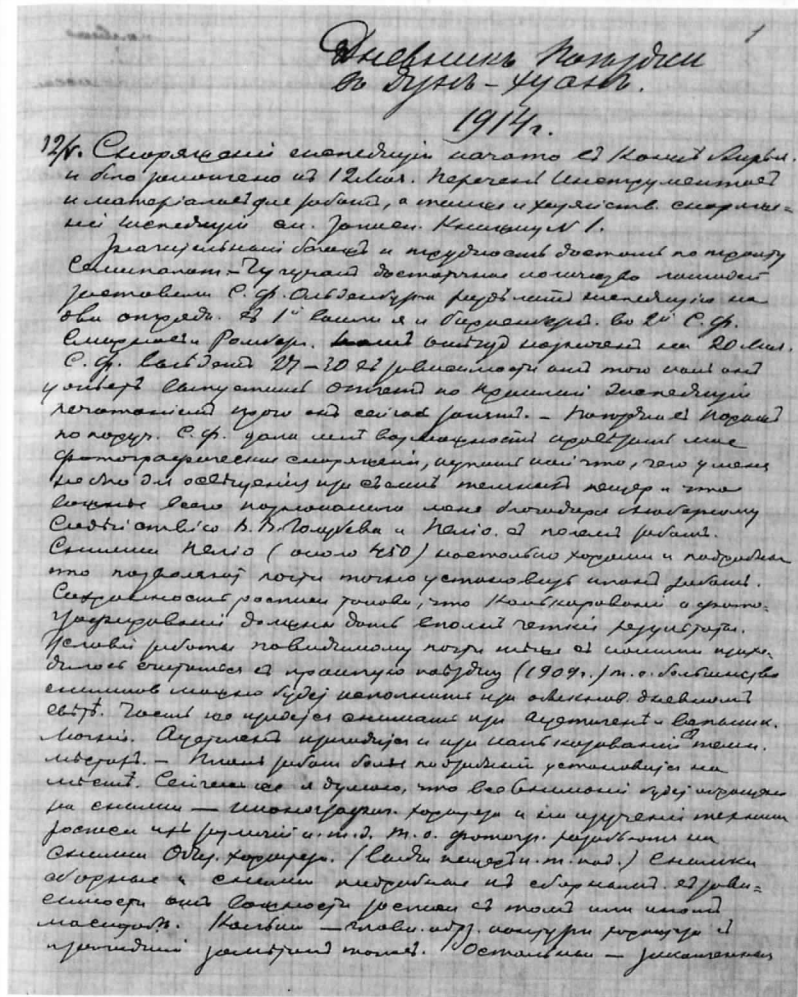 1
Дневникъ Поѣздки
въ Дунъ-хуанъ.
1914 г.
12/V. Снаряженіе экспедиціи начато съ конца Апрѣля
и было закончено къ 12 Мая. Перечень инструментовъ
и матеріаловъ для работъ, а также и хозяйств. снаряже-
нія экспедиціи см. Записн. Книжку N 1.
Значительный багажъ и трудность достать по тракту
Семипалат.-Чугучакъ достаточное количество лошадей
заставили С. Ф. Ольденбурга раздѣлить экспедицію на
два отряда. Въ 1й вошли я и Биркенбергъ. во 2й С. Ф.
Смирновъ и Ромбергъ. выѣздъ назначенъ на 20 Мая.
С. Ф. выѣдетъ 27-30 въ зависимости отъ того какъ онъ
успѣетъ выпустить отчетъ по прошлой экспедиціи
печатаніемъ котораго онъ сейчасъ занятъ. - Поѣздка въ Парижъ
по поруч. С. Ф. дала мнѣ возможность провѣрить мое
фотографическое снаряженіе, купить кой что, чего у меня
не было для освѣщенія при съемкѣ темныхъ пещер и что
важнѣе всего познакомило меня благодаря любезному
содѣйствію В. В. Голубева и Пелліо. съ полемъ работъ.
Снимки Пелліо (около 450) настолько хороши и подробны
что позволяютъ почти точно установить планъ работъ.
Сохранность росписи такова, что калькированіе и фото-
графированіе должны дать вполнѣ четкіе результаты.
Условія работы повидимому почти тѣ же съ какими прихо-
дилось считаться въ прошлую поѣздку (1909 г.) т. е. большинство
снимковъ можно будетъ исполнить при обыкнов. дневномъ
свѣтѣ. Часть же придется снимать при Ацетиленѣ и вспышк.
Магнія. Ацетиленъ пригодится и при калькированіи въ темн.
мѣстахъ. - Планъ работъ болѣе подробный установится на
мѣстѣ. Сейчасъ же я думаю, что все вниманіе будетъ обращено
на снимки - иконографич. характера и на изученіе техники
росписи ихъ различій и. т. д. т. е. фотогр. разобьются на
снимки Общ. характера. (виды пещеръ и. т. под.) снимки
сборные и снимки подробные къ сборнымъ. въ зави-
симости отъ важности росписи въ томъ или иномъ
масштабѣ. Кальки - главн. обр. контуры характера и
Остальныя - законченныя